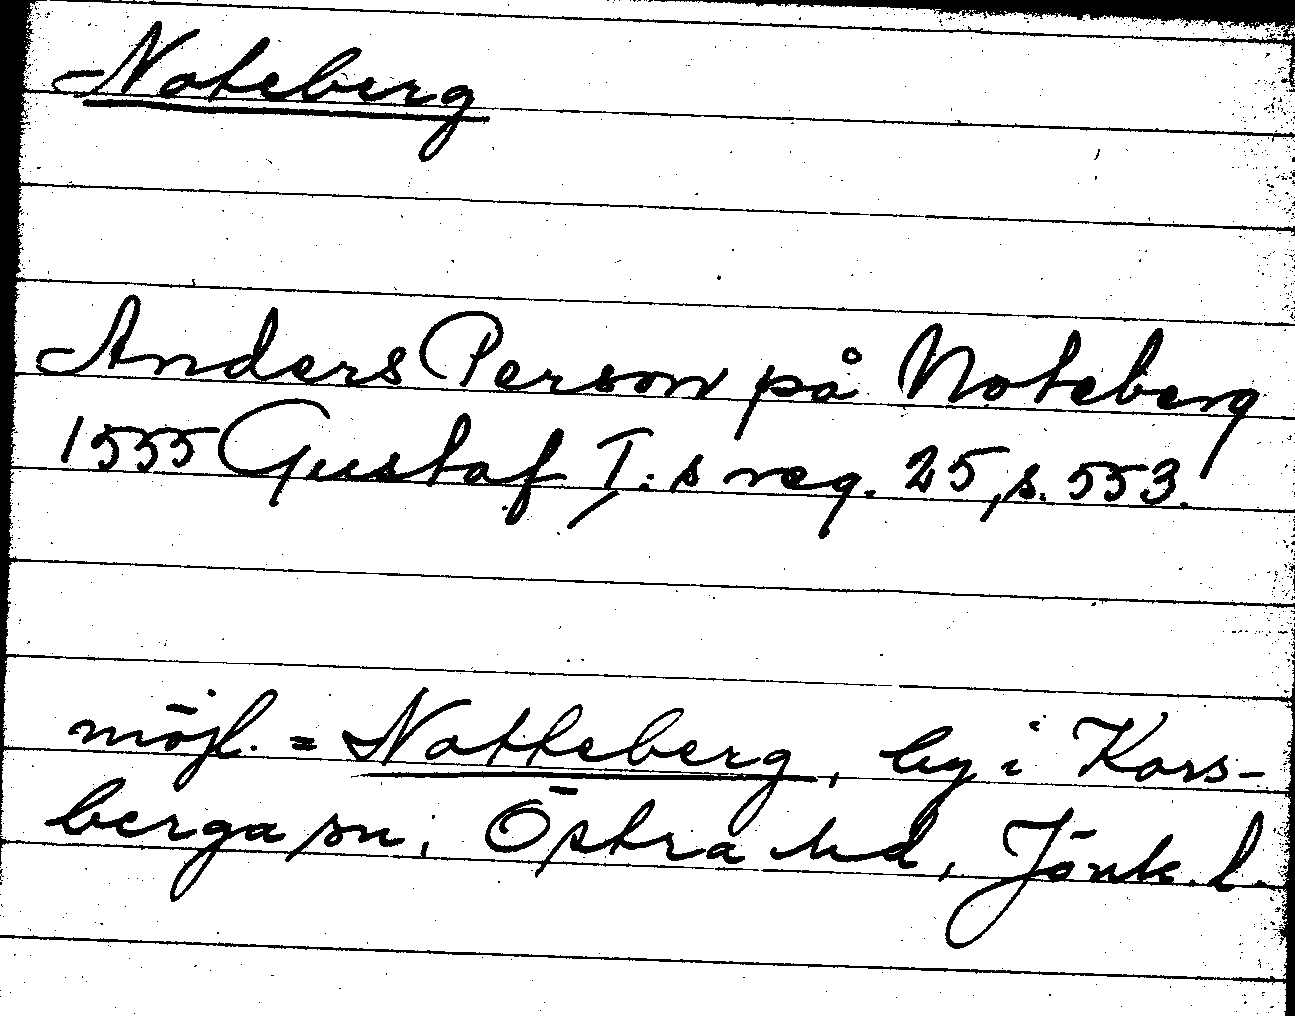 Noteberg
Anders Person på Noteberg
1555 Gustaf I:s reg. 25, s. 553.
möjl. = Notteberg, by i Kors-
berga sn, Östra hd, Jönk. l.